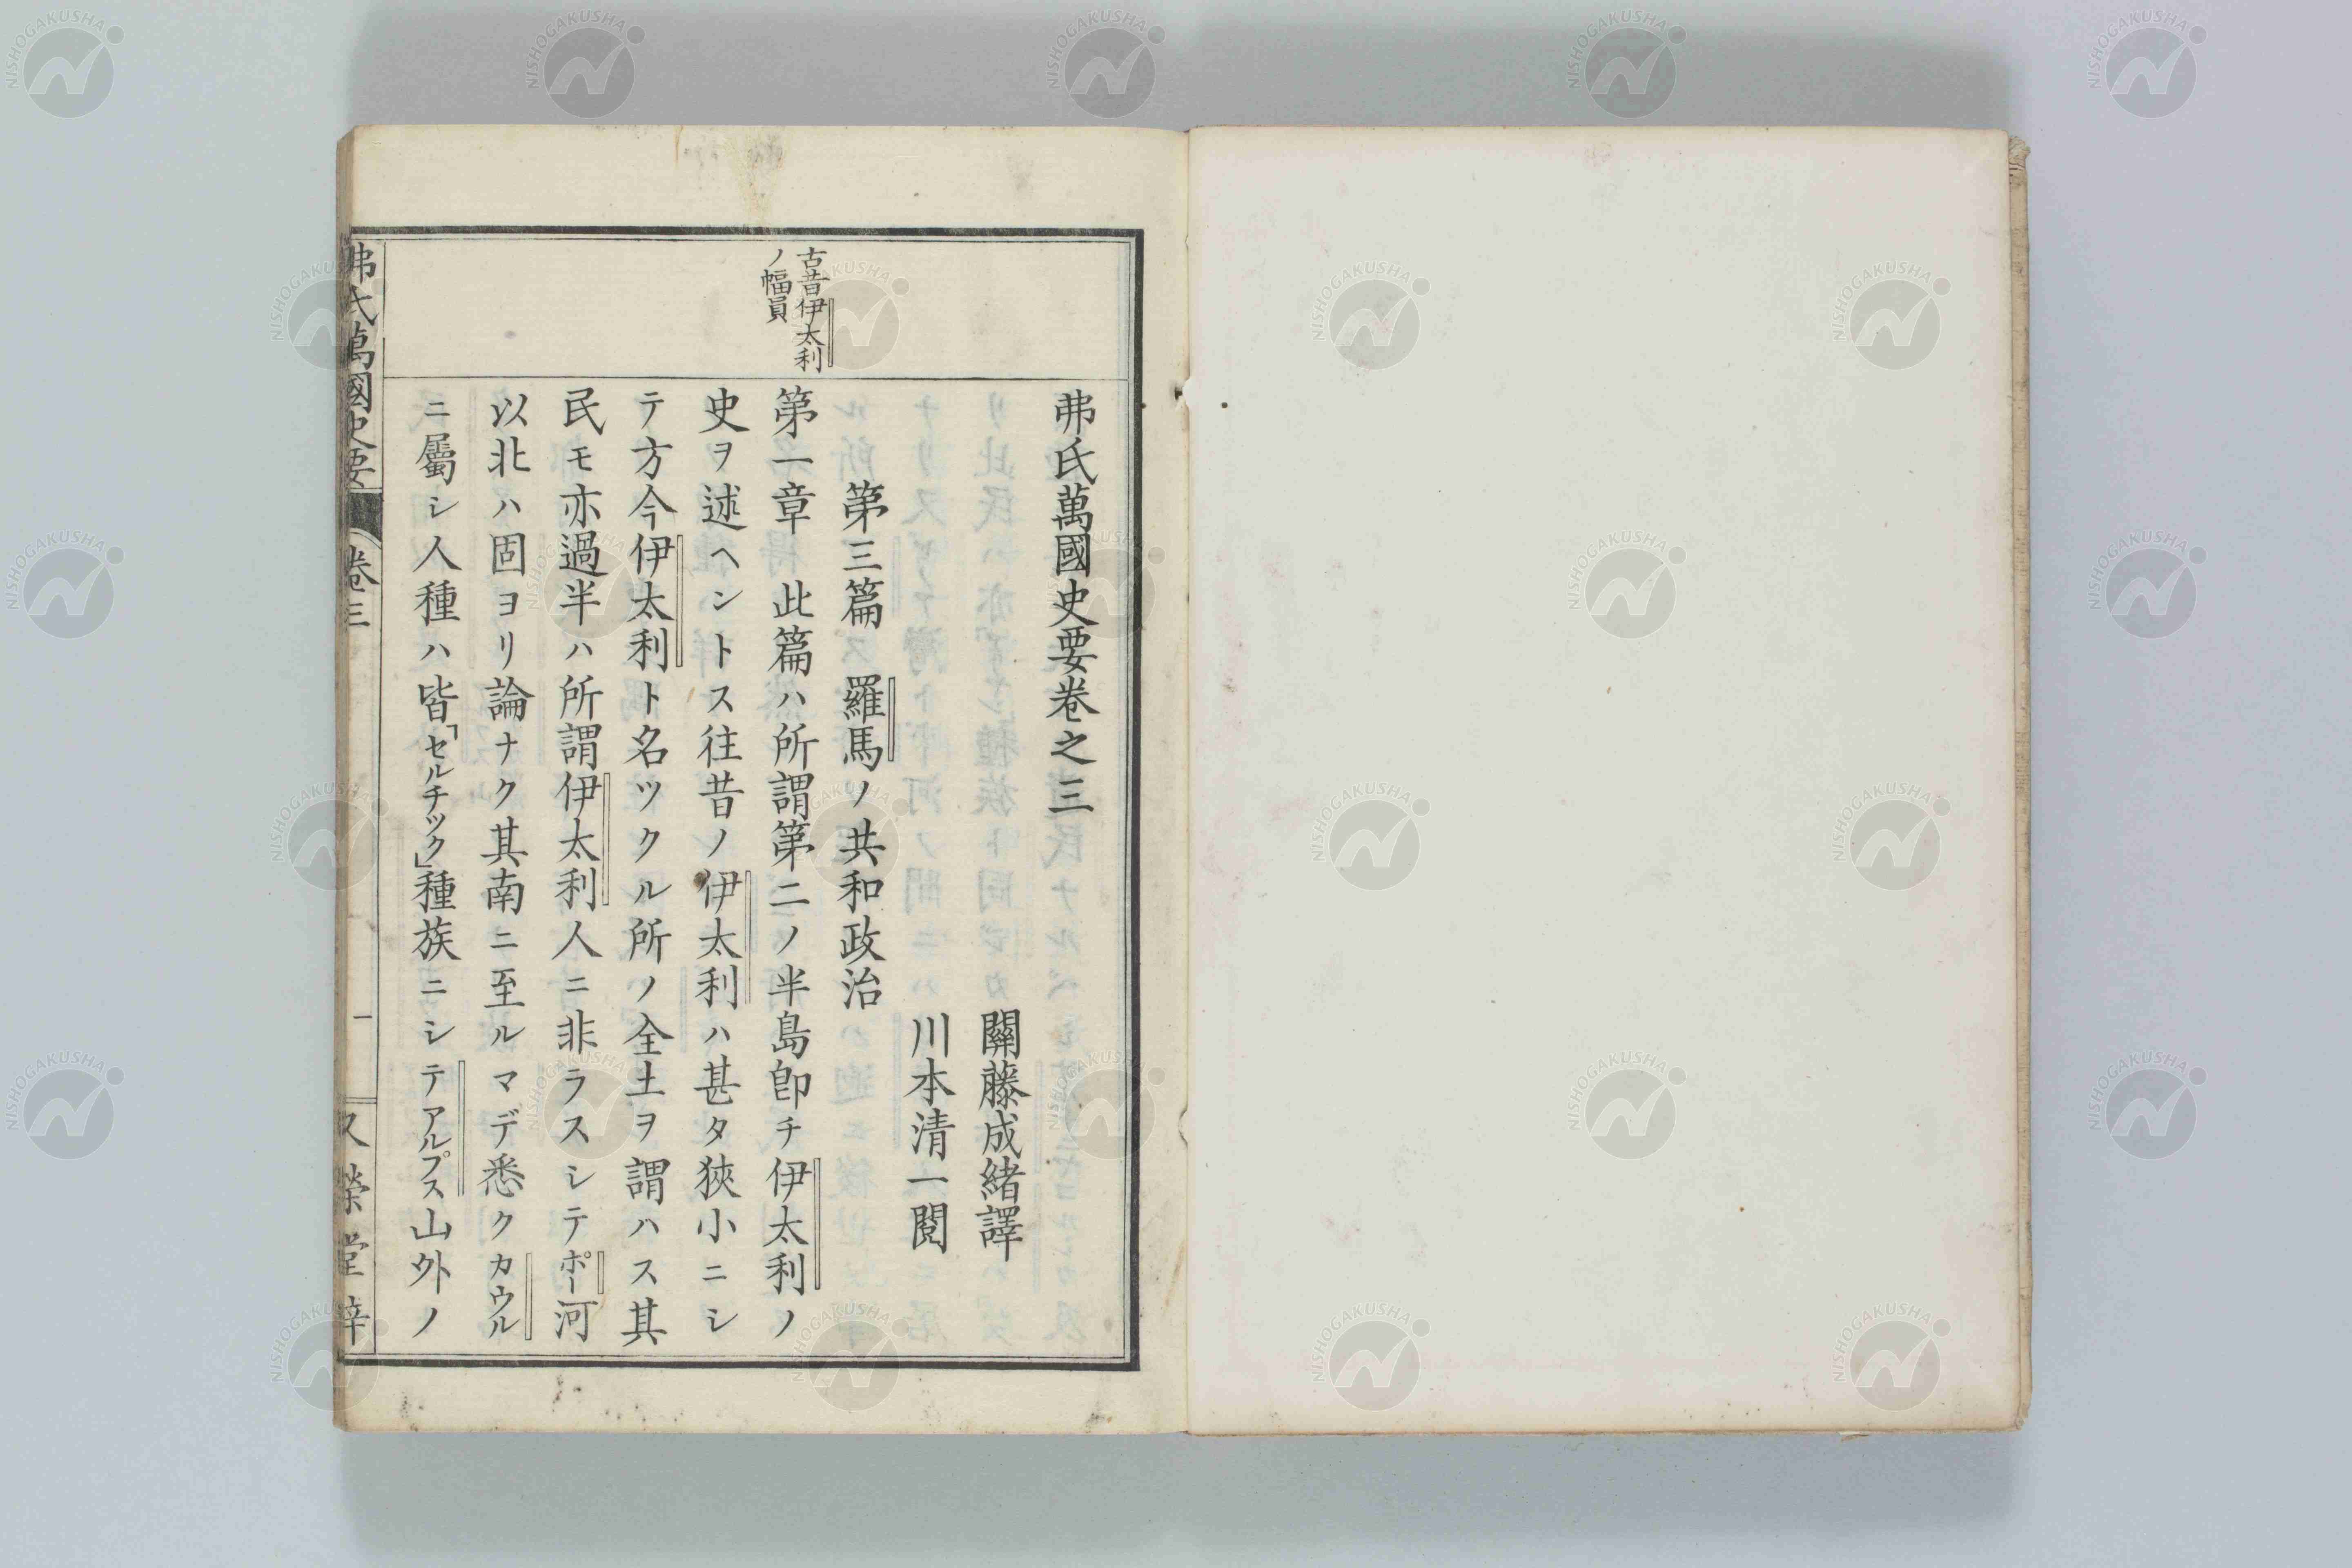 弗氏萬國史要卷之三
關藤成緒譯
川本清一閱
第三篇 羅馬ノ共和政治
古昔伊太利
ノ幅員
第一章 此篇ハ所謂第二ノ半島卽チ伊太利ノ
史ヲ述ヘントス往昔ノ伊太利ハ甚タ狹小ニシ
テ方今伊太利ト名ツクル所ノ全土ヲ謂ハス其
民モ亦過半ハ所謂伊太利人ニ非ラスシテポー河
以北ハ固ヨリ論ナク其南ニ至ルマデ悉クカウル
ニ屬シ人種ハ皆「セルチック」種族ニシテアルプス山外ノ
弗氏萬國史要 卷三 一 久榮堂梓
NISHOGAKUSHA